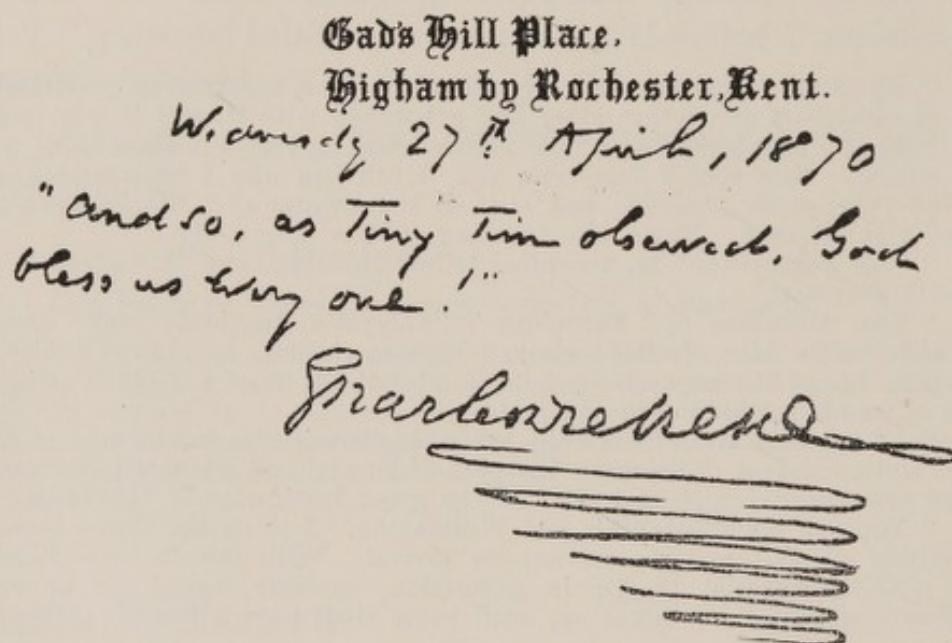 Gad's Hill Place,
Higham by Rochester, Kent.
Wednesday 27th April, 1870
"And so, as Tiny Tim observed, God
bless us every one!"
Charles Dickens